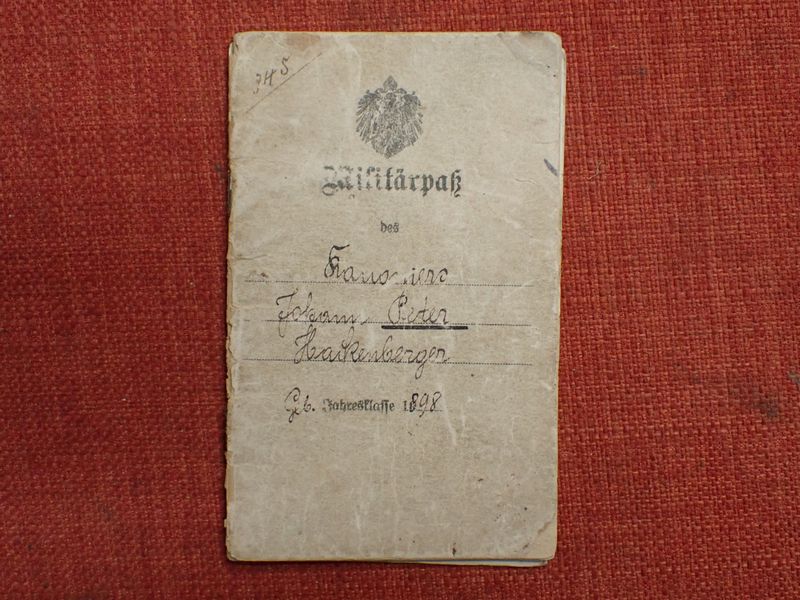 345
Militärpaß
des
Kanoniers
Johann Peter
Hackenberger
Geb. Jahresklasse 1898